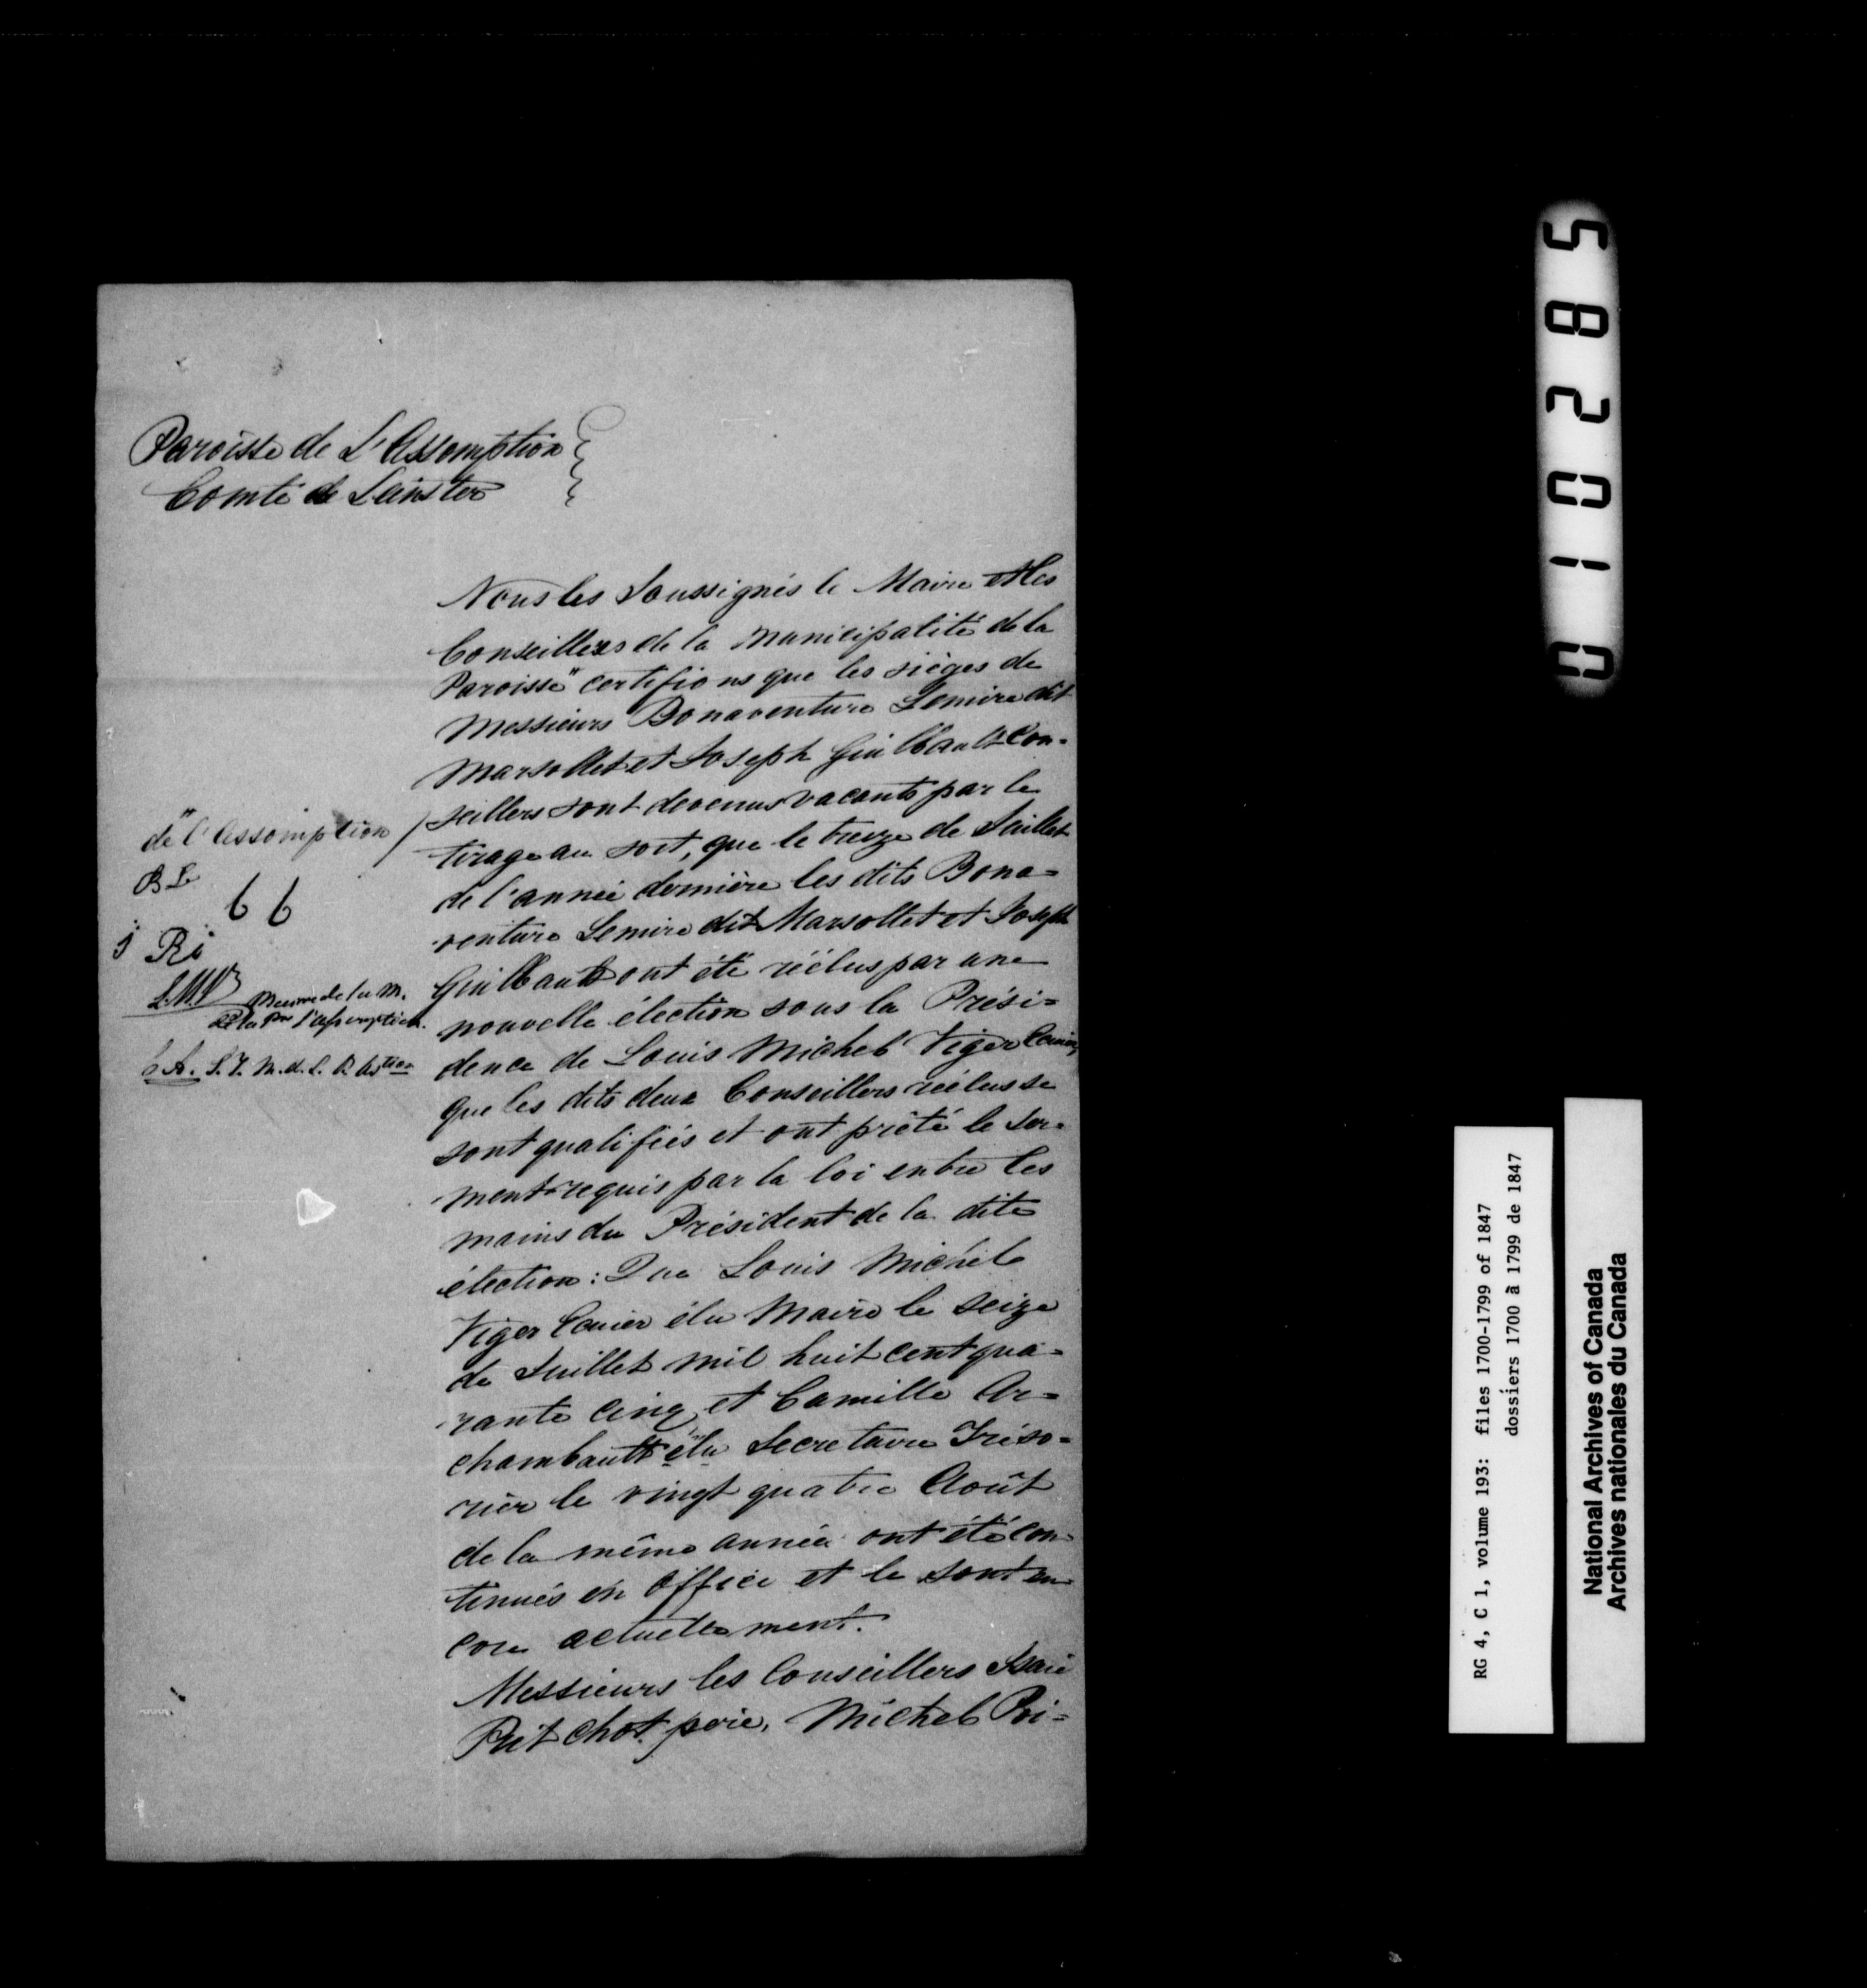 Paroisse de L'Assomption
Comté de Leinster
Nous les Soussignés le Maire et les
Conseillers de la Municipalité de la
Paroisse " certifions que les sièges de
Messieurs Bonaventure Lemire dit
Marsollet et Joseph Guilbault Con=
seillers sont devenus vacants par le
tirage au sort, que le treize de Juillet
de l'année dernière les dits Bona=
venture Lemire dit Marsollet et Joseph
Guilbault ont été réélus par une
nouvelle élection sous la Prési=
dence de Louis Michel Viger
que les dits deux Conseillers réélus se
sont qualifiés et ont prêté le Ser=
ment requis par la loi entre les
mains du Président de la dite
élection : Que Louis Michel
Viger Ecuier élu Maire le seize
de Juillet mil huit cent qua=
rante cinq et Camille Ar=
chambault élu Secretaire Tréso=
rier le vingt quatre Août
de la même année ont été con=
tinués en office et le sont en
core actuellement.
Messieurs les Conseillers Isaïe
Pritchot père, Michel Ri=
" de l'Assomption /
B L
6 6
j Ri
L.M.V. de la M.
de la Pse l'assomption.
C A. S. T. M. d. l. P. Astion
010285
RG 4, C 1, volume 193: files 1700-1799 of 1847
dossiers 1700 à 1799 de 1847
National Archives of Canada
Archives nationales du Canada